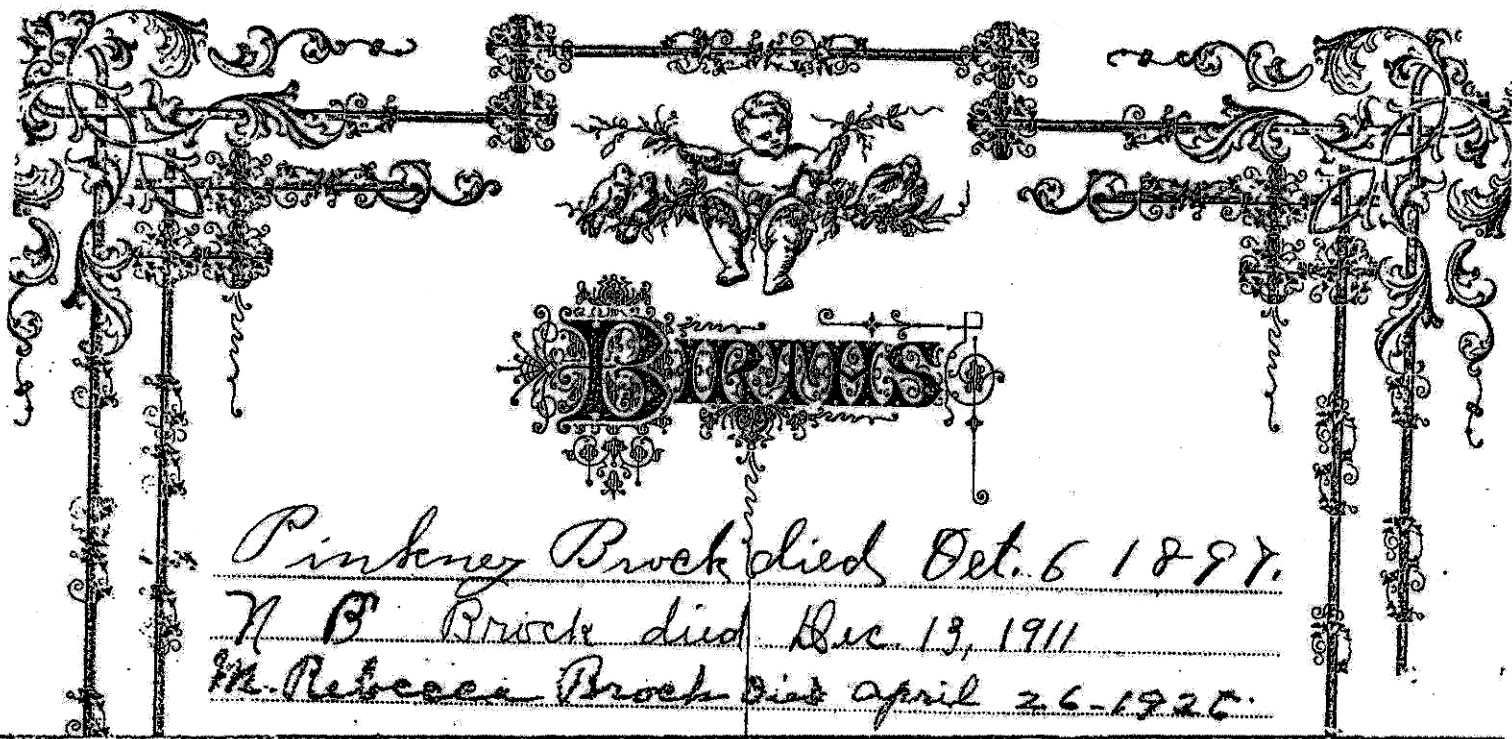 BIRTHS
Pinkney Brock died Oct. 6 1897.
N B Brock died Dec. 13, 1911
M. Rebecca Brock Died april 26-1925.